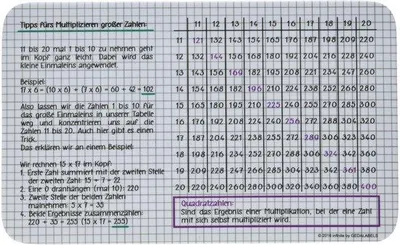 Tipps fürs Multiplizieren großer Zahlen:
11 bis 20 mal 1 bis 10 zu nehmen geht
im Kopf ganz leicht. Dabei wird das
kleine Einmaleins angewendet.
Beispiel:
17 x 6 = (10 x 6) + (7 x 6) = 60 + 42 = 102
Also lassen wir die Zahlen 1 bis 10 für
das große Einmaleins in unserer Tabelle
weg und konzentrieren uns auf die
Zahlen 11 bis 20. Auch hier gibt es einen
Trick.
Das erklären wir an einem Beispiel:
Wir rechnen 15 x 17 im Kopf:
1. Erste Zahl summiert mit der zweiten Stelle
der zweiten Zahl: 15 + 7 = 22
2. Eine 0 dranhängen (mal 10): 220
3. Zweite Stelle der beiden Zahlen
malnehmen: 5 x 7 = 35
4. Beide Ergebnisse zusammenzählen:
220 + 35 = 255 (15 x 17 = 255)
11 12 13 14 15 16 17 18 19 20
11 121 132 143 154 165 176 187 198 209 220
12 132 144 156 168 180 192 204 216 228 240
13 143 156 169 182 195 208 221 234 247 260
14 154 168 182 196 210 224 238 252 266 280
15 165 180 195 210 225 240 255 270 285 300
16 176 192 208 224 240 256 272 288 304 320
17 187 204 221 238 255 272 289 306 323 340
18 198 216 234 252 270 288 306 324 342 360
19 209 228 247 266 285 304 323 342 361 380
20 220 240 260 280 300 320 340 360 380 400
Quadratzahlen:
Sind das Ergebnis einer Multiplikation, bei der eine Zahl
mit sich selbst multipliziert wird.